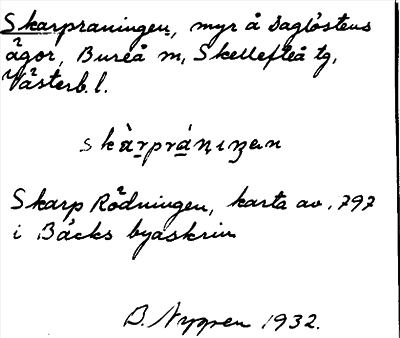 Skarpraningen, myr å Daglöstens
ägor, Bureå sn, Skellefteå tg,
Västerb. l.
skàrprániŋen
Skarp Rödningen, karta av 1797
i Bäcks byaskrin
B. Nygren 1932.